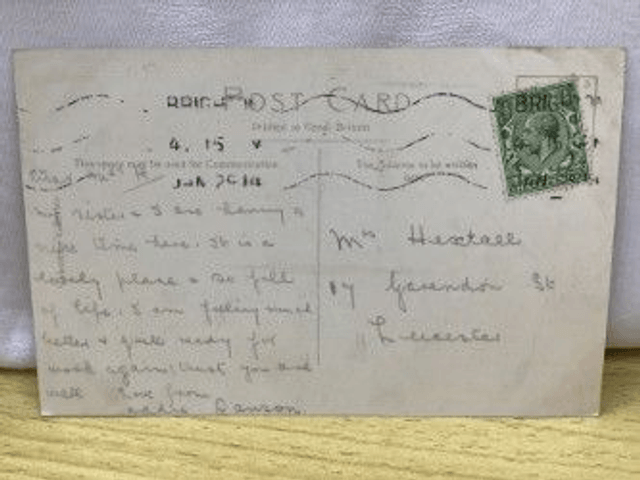 POST CARD
Printed in Great Britain
4. 15
This space may be used for Communication
The Address to be written
BRIG
my sister & I are having a
nice time here. It is a
lovely place & so full
of life. I am feeling much
better & quite ready for
work again. trust you are
well Love from
Dawson.
Mrs Hextall
17 Garendon St
Leicester